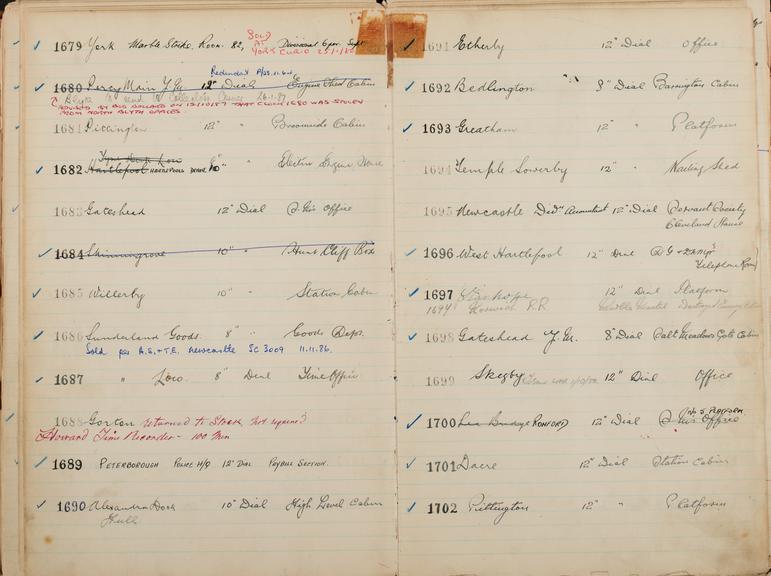 1679 York Marble Strike, Room. 82, Divisional Supt
SOLD
AT
YORK
CURIO 25.1.86
Redundant
1680 Percy Main Y.M. 12" Dial Engine Shed Cabin
ADVISED BY BSD CALLED ON 12/10/87 THAT CLOCK 1680 WAS STOLEN
FROM NORTH BLYTH OFFICES
1681 Piccington 12" " Broomside Cabin
1682 Hartlepool HARTLEPOOLS Electric Engine House
1683 Gateshead 12" Dial Office
1684 Skinningrove 10" " Hunt Cliff Box
1685 Willerby 10" " Station Cabin
1686 Sunderland Goods. 8" " Goods Dept.
Sold per A.S.+T.E. Newcastle SC 3009 11.11.86.
1687 " Loco. 8" Dial Time Office
1688 Gorton returned to Stock not required
Howard Time Recorder - 100 Min
1689 PETERBOROUGH POLICE H/Q 12" DIAL PAYBILL SECTION.
1690 Alexandra Dock 10" Dial High Level Cabin
Hull
1691 Etherby 12" Dial Office
1692 Bedlington 8" Dial Barrington Cabin
1693 Greatham 12" " Platform
1694 Temple Sowerby 12" " Waiting Shed
1695 Newcastle Dist Accountant 12" Dial Servant Society
Cleveland House
1696 West Hartlepool 12" Dial
Telephone Room
1697 12" Dial Platform
1698 Gateshead Y.M. 8" Dial Salt Meadows Gate Cabin
1699 Skegby 12" Dial Office
1700 Lea Bridge ROMFORD 12" Dial Office
1701 Dacre 12" Dial Station Cabin
1702 Pittington 12" " Platform